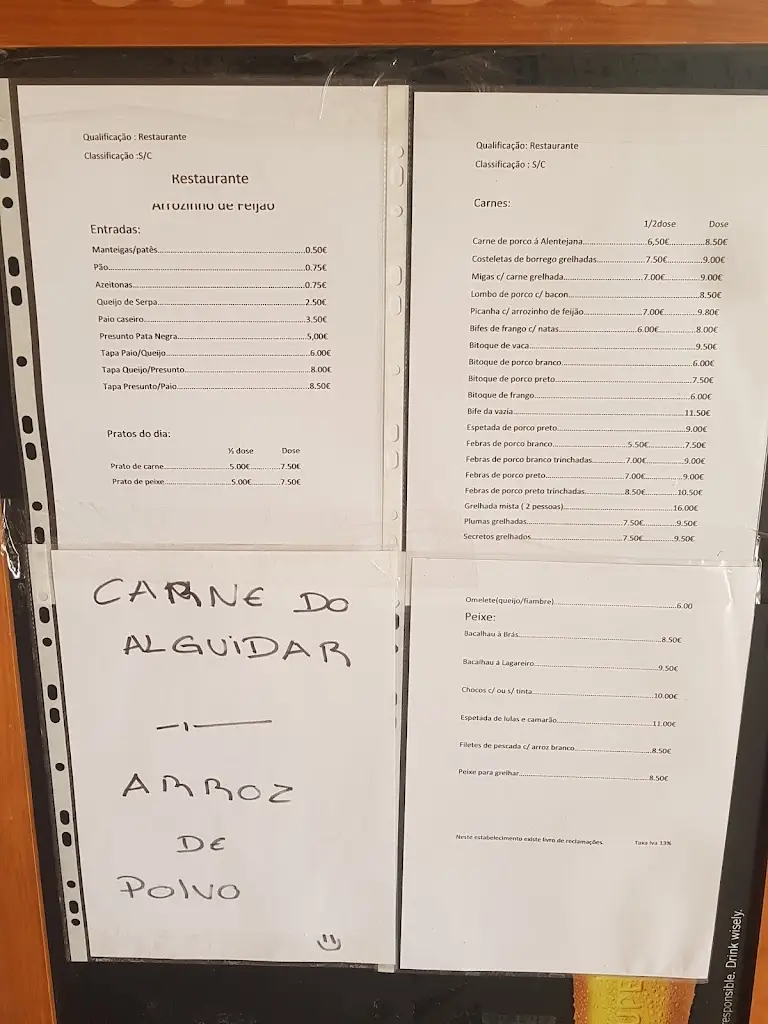 Qualificação : Restaurante
Classificação :S/C
Restaurante
Arrozinho de Feijão
Entradas:
Manteigas/patês......0.50€
Pão......0.75€
Azeitonas......0.75€
Queijo de Serpa......2.50€
Paio caseiro......3.50€
Presunto Pata Negra......5,00€
Tapa Paio/Queijo......6.00€
Tapa Queijo/Presunto......8.00€
Tapa Presunto/Paio......8.50€
Pratos do dia:
½ dose Dose
Prato de carne......5.00€......7.50€
Prato de peixe......5.00€......7.50€
Qualificação: Restaurante
Classificação : S/C
Carnes:
1/2dose Dose
Carne de porco á Alentejana......6,50€......8.50€
Costeletas de borrego grelhadas......7.50€......9.00€
Migas c/ carne grelhada......7.00€......9.00€
Lombo de porco c/ bacon......8.50€
Picanha c/ arrozinho de feijão......7.00€......9.80€
Bifes de frango c/ natas......6.00€......8.00€
Bitoque de vaca......9.50€
Bitoque de porco branco......6.00€
Bitoque de porco preto......7.50€
Bitoque de frango......6.00€
Bife da vazia......11.50€
Espetada de porco preto......9.00€
Febras de porco branco......5.50€......7.50€
Febras de porco branco trinchadas......7.00€......9.00€
Febras de porco preto......7.00€......9.00€
Febras de porco preto trinchadas......8.50€......10.50€
Grelhada mista ( 2 pessoas)......16.00€
Plumas grelhadas......7.50€......9.50€
Secretos grelhados......7.50€......9.50€
CARNE DO
ALGUIDAR
ARROZ
DE
POLVO
Omelete(queijo/fiambre)......6.00
Peixe:
Bacalhau à Brás......8.50€
Bacalhau à Lagareiro......9.50€
Chocos c/ ou s/ tinta......10.00€
Espetada de lulas e camarão......11.00€
Filetes de pescada c/ arroz branco......8.50€
Peixe para grelhar......8.50€
Neste estabelecimento existe livro de reclamações. Taxa Iva 13%
esponsible. Drink wisely.